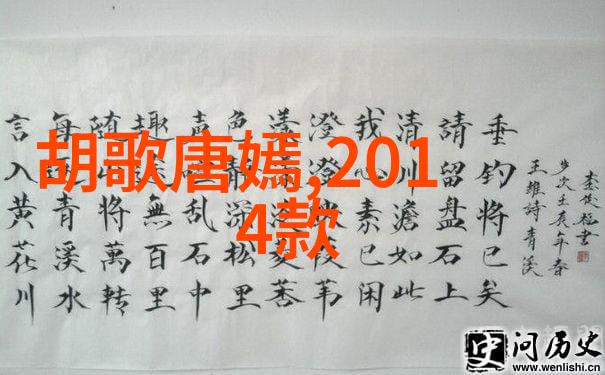 胡歌唐嫣,2014款
言入黄花川
每逐青溪水
随山將萬转
趣途無百里
声喧乱石中
色静深松里
漾漾泛菱荇
澄澄映葭苇
我心素已闲
清川澹如此
請留盘石上
垂钓将已矣
王維詩青溪
岁次壬辰年春
書
史问历史
www.wenlishi.cn